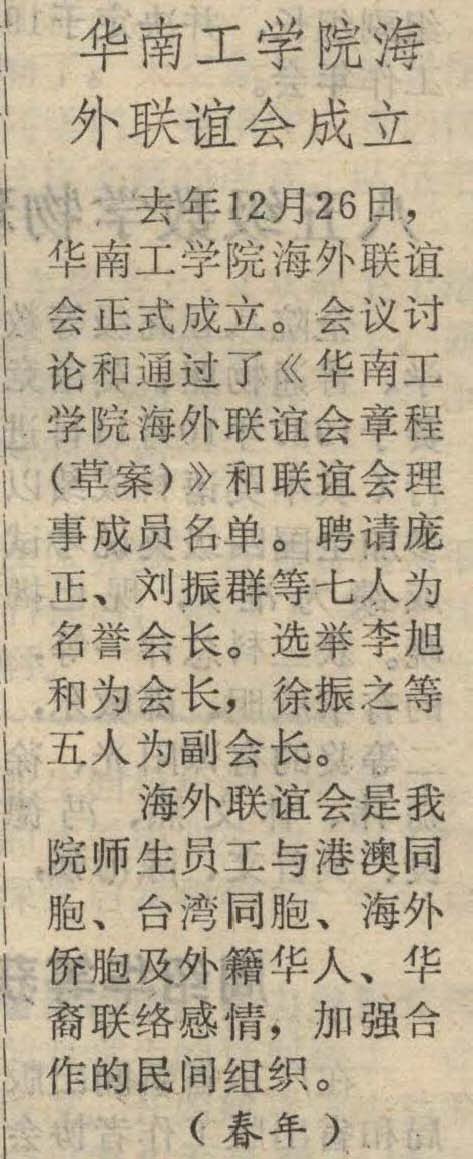 华南工学院海
外联谊会成立
去年12月26日，
华南工学院海外联谊
会正式成立。会议讨
论和通过了《华南工
学院海外联谊会章程
（草案）》和联谊会理
事成员名单。聘请庞
正、刘振群等七人为
名誉会长。选举李旭
和为会长，徐振之等
五人为副会长。
海外联谊会是我
院师生员工与港澳同
胞、台湾同胞、海外
侨胞及外籍华人、华
裔联络感情，加强合
作的民间组织。
（春年）